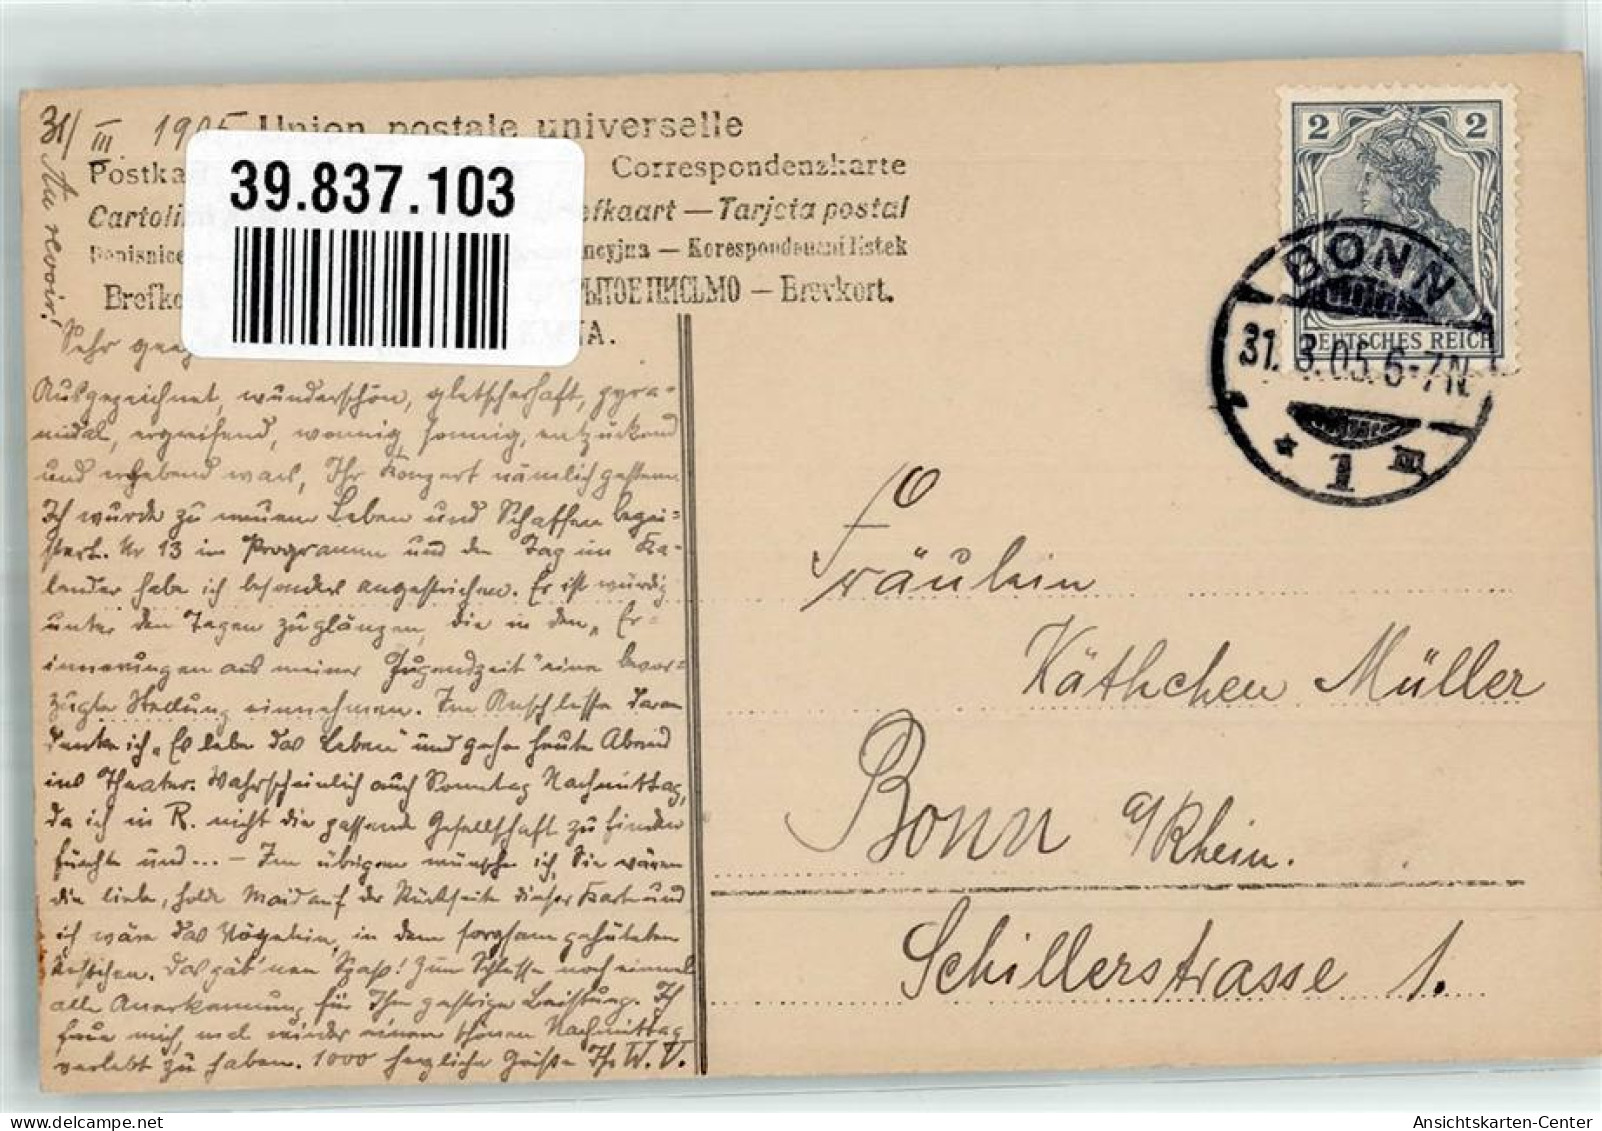 31/III 1905.
Au revoir!
Union postale universelle
Postka
Correspondenzkarte
Cartolin
efkaart — Tarjeta postal
Dopisnice
ncyjna — Korespondenční lístek
Brefko
РЫТОЕ ПИСЬМО — Brevkort.
A.
39.837.103
2 2
DEUTSCHES REICH
BONN
31.3.05.6-7N.
* 1 III
Sehr geeh
Ausgezeichnet, wunderschön, gletscherhaft, pyra-
midal, ergreifend, wonnig, sonnig, entzückend
und erhebend war's, Ihr Konzert nämlich gestern.
Ich wurde zu neuem Leben und Schaffen begei-
stert. Nr 13 im Programm und den Tag im Ka-
lender habe ich besonders angestrichen. Er ist würdig
unter den Tagen zu glänzen, die in den „Er-
innerungen aus meiner Jugendzeit" eine bevor-
zugte Stellung einnehmen. Im Anschlusse daran
denke ich „Es lebe das Leben" und gehe heute Abend
ins Theater. Wahrscheinlich auch Sonntag Nachmittag,
da ich in R. nicht die passende Gesellschaft zu finden
fürchte und... – Im übrigen wünsche ich, Sie wären
die liebe, holde Maid auf der Rückseite dieser Karte und
ich wäre das Vögelein, in dem sorgsam gehüteten
Kästchen. Das gäb' nen Spaß! Zum Schlusse noch einmal
alle Anerkennung für Ihre gestrige Leistung. Ich
freue mich, mal wieder einen schönen Nachmittag
verlebt zu haben. 1000 herzliche Grüße Ihr W. V.
Fräulein
Käthchen Müller
Bonn a/Rhein.
Schillerstrasse 1.
Ansichtskarten-Center